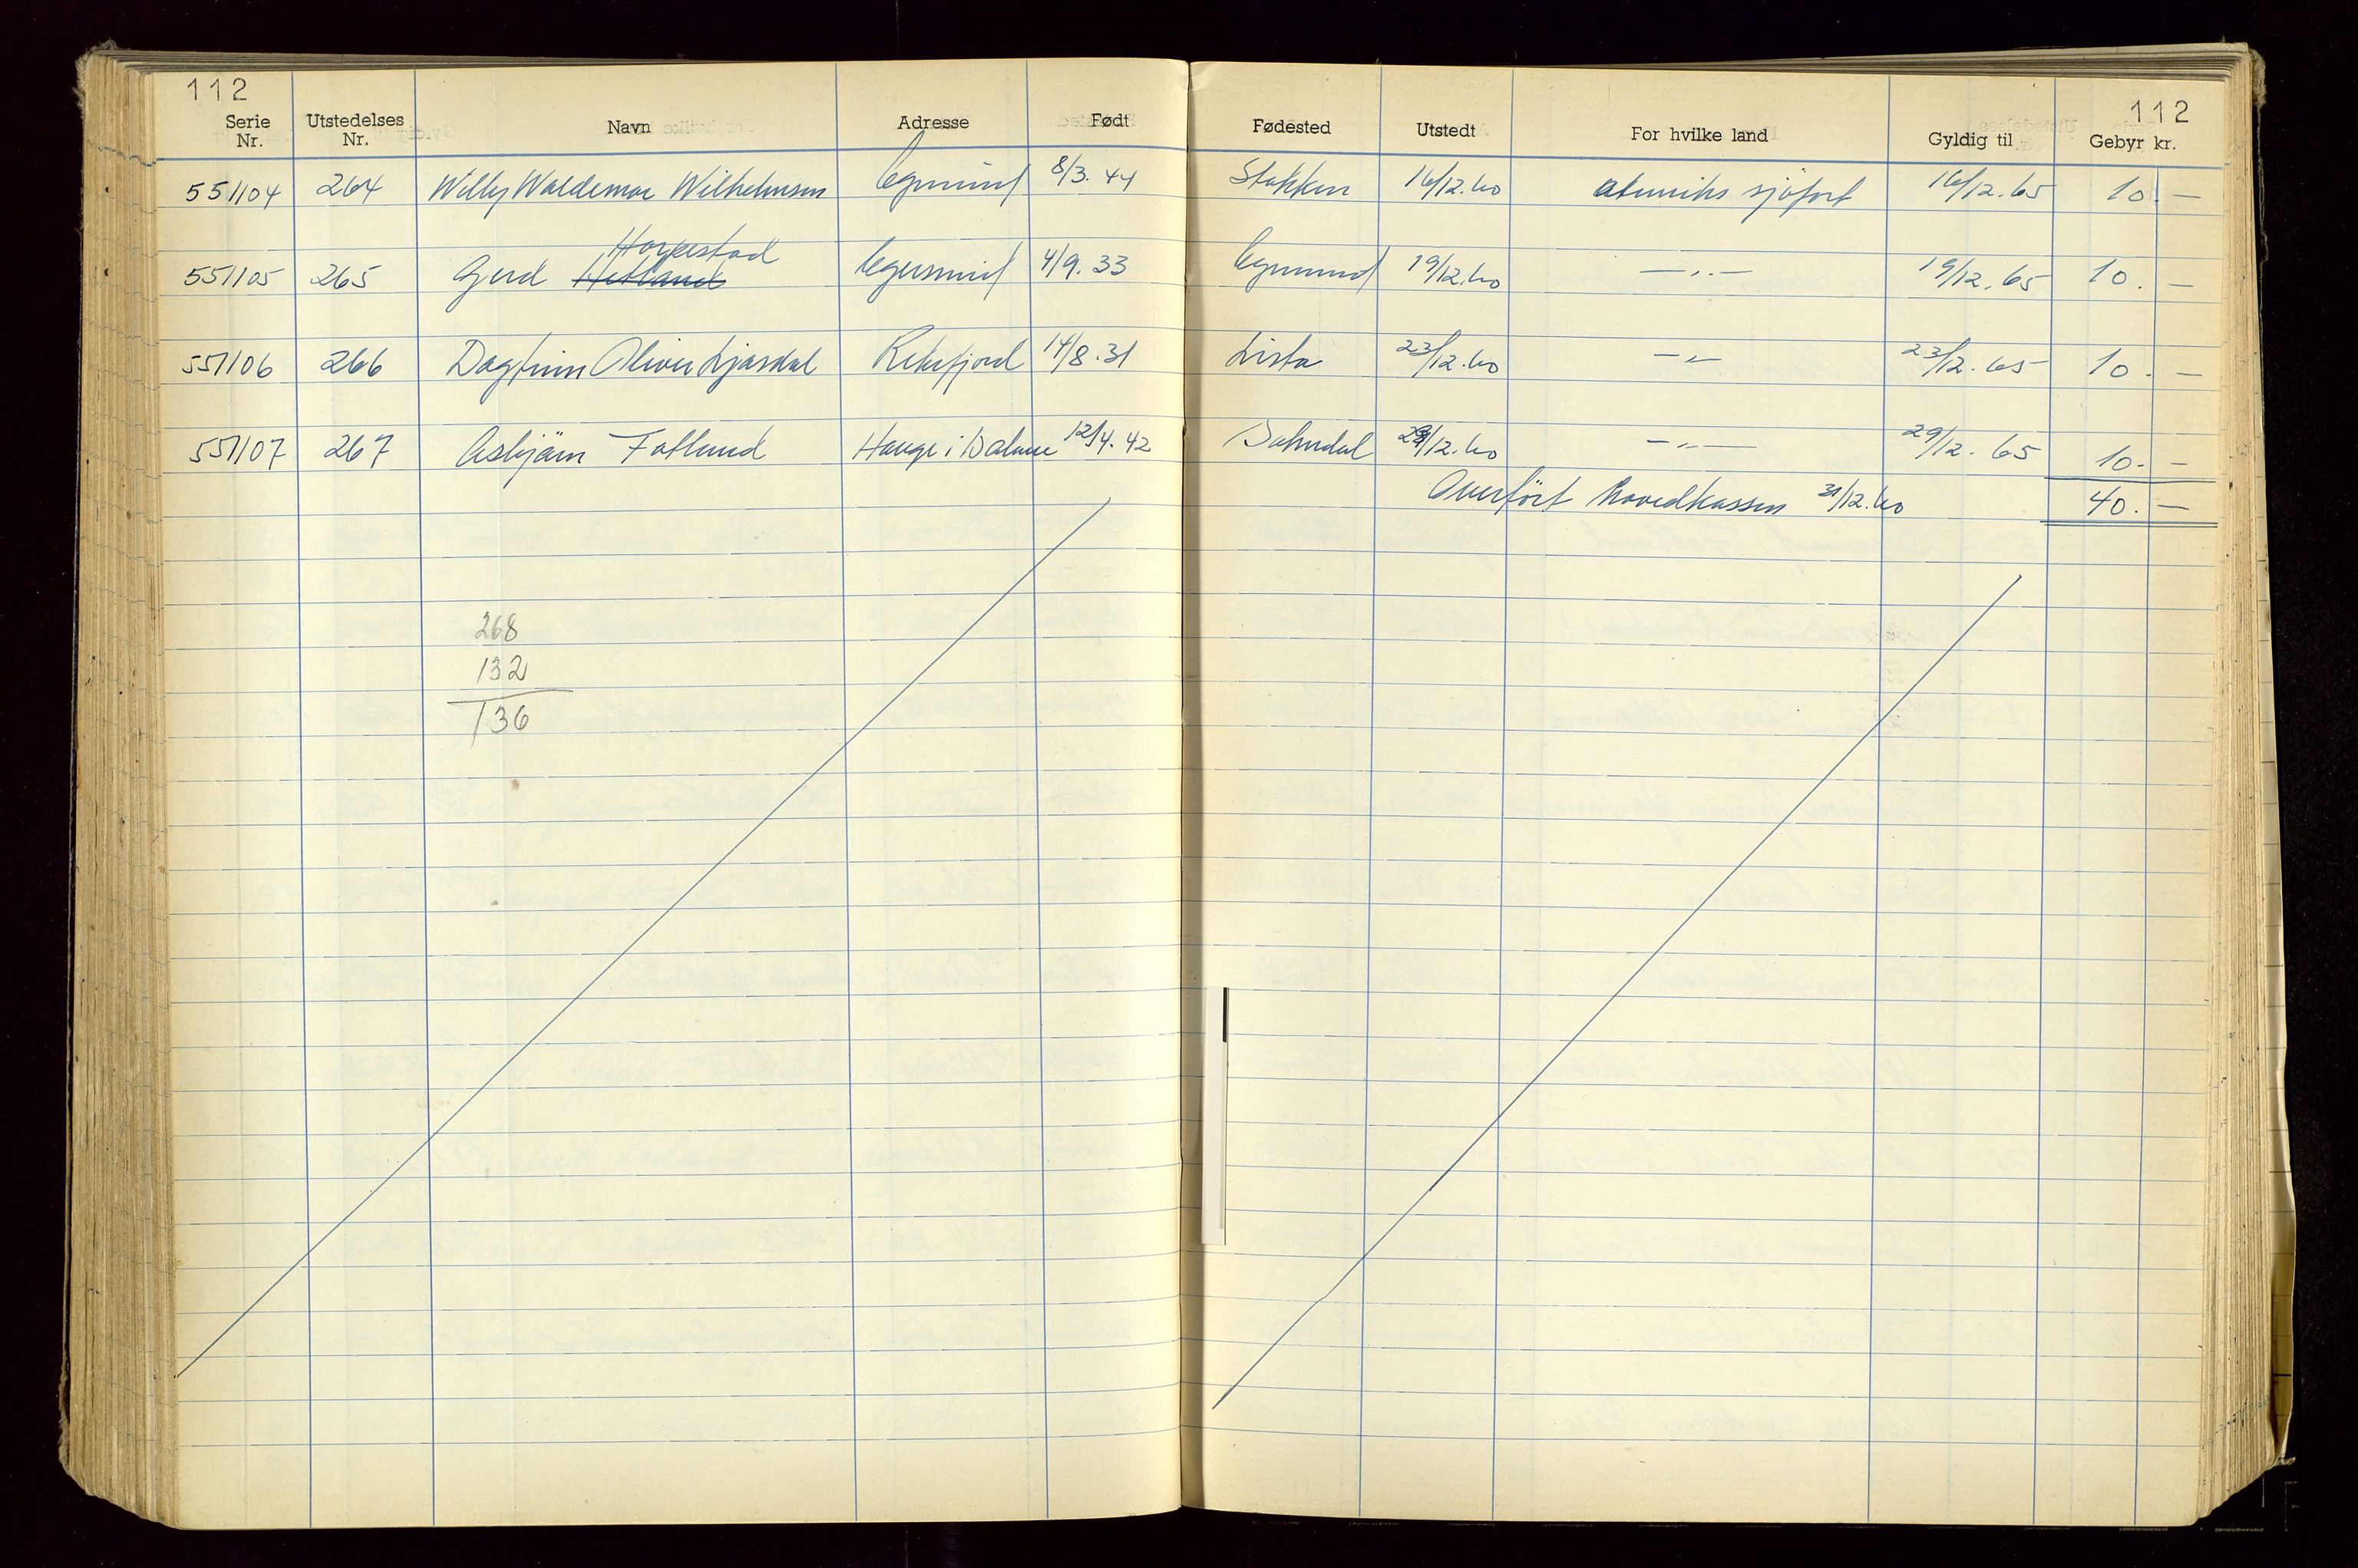 112 112
Serie Nr. Utstedelses Nr. Navn Adresse Født Fødested Utstedt For hvilke land Gyldig til Gebyr kr.
551104 264 Willy Waldemar Wilhelmsen Egersund 8/3.44 Stokken 16/12.60 sjøfart 16/12.65 10.—
Horpestad
551105 265 Gerd Hetland Egersund 4/9.33 Egersund 19/12.60 — „ — 19/12.65 10.—
551106 266 Dagfinn Oliver Ljosdal Rekefjord 14/8.31 Lista 23/12.60 — „ — 23/12.65 10.—
551107 267 Asbjørn Fotland Hauge i Dalane 12/4.42 Sokndal 29/12.60 — „ — 29/12.65 10.—
Overført hovedkassen 31/12.60 40.—
268
132
136